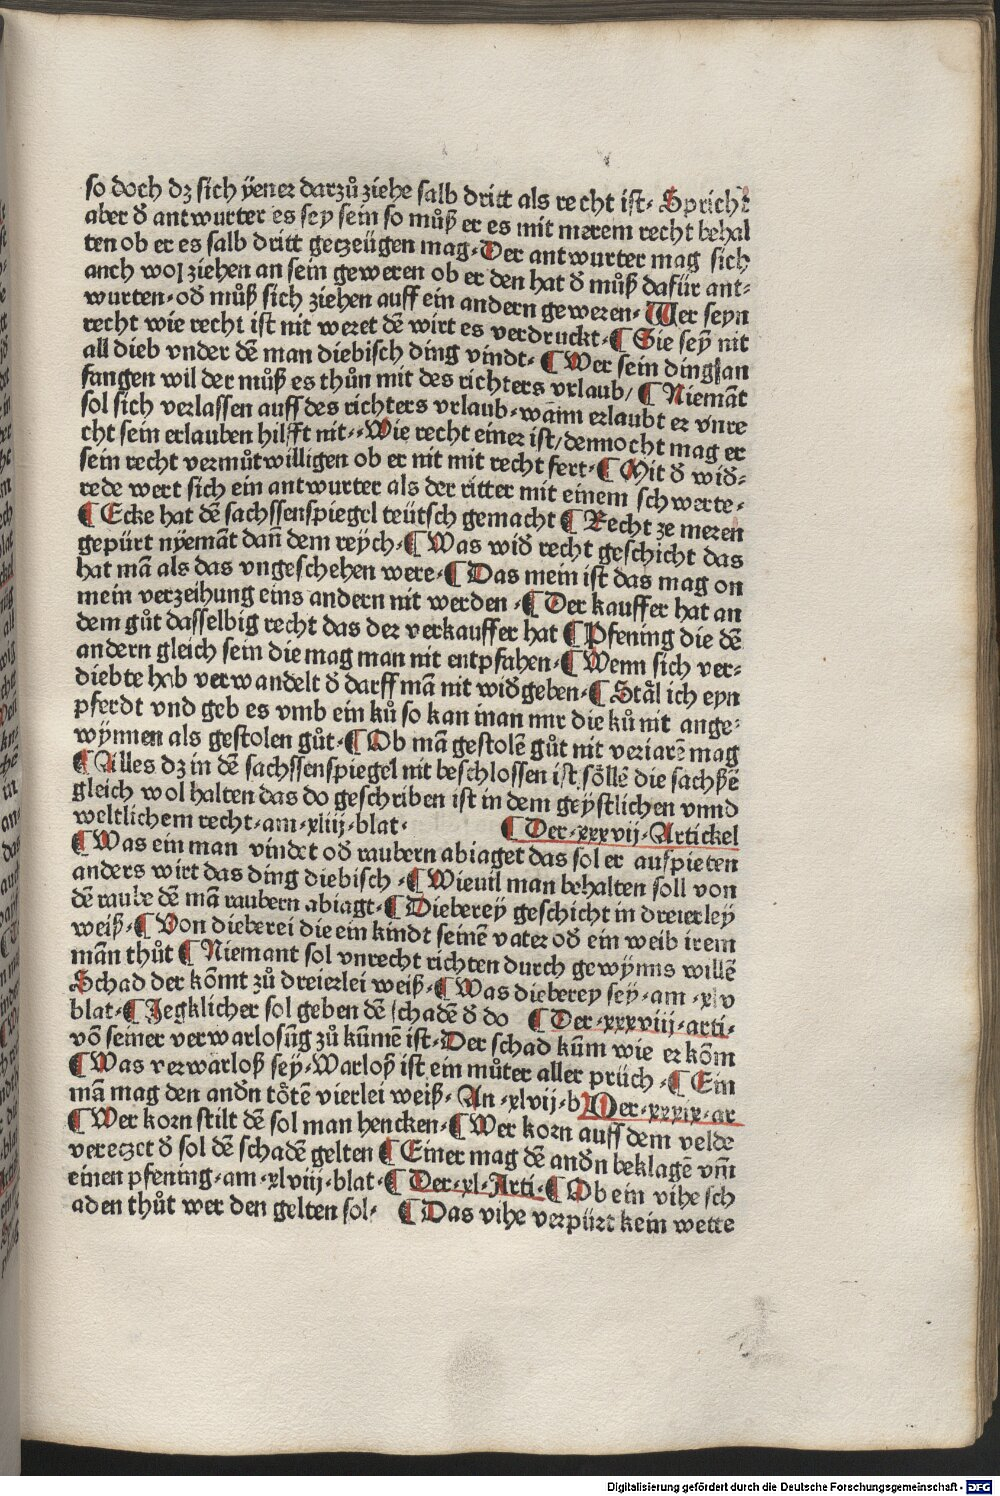 so doch dz sich ÿener darzů ziehe salb dritt als recht ist· Spricht
aber đ antwurter es sey sein so můß er es mit merem recht behal
ten ob er es salb dritt gerzeügen mag·Der antwurter mag sich
auch wol ziehen an sein geweren ob er den hat đ můß dafür ant⸗
wurten·ođ můß sich ziehen auff ein andern geweren·Wer seyn
recht wie recht ist nit weret dē wirt es verdruckt·¶ Sie seÿ nit
all dieb vnder dē man diebisch ding vindt·¶ Wer sein ding an
fangen wil der můß es thůn mit des richters vrlaub/ ¶ Niemāt
sol sich verlassen auff des richters vrlaub·wānn erlaubt er vnre
cht sein erlauben hilfft nit··Wie recht einer ist/dennocht mag er
sein recht vermůtwilligen ob er nit mit recht fert·¶ Mit đ wiđ⸗
rede wert sich ein antwurter als der ritter mit einem schwerte·
¶ Ecke hat dē sachssenspiegel teütsch gemacht ¶ Recht ze meren
gepürt nÿemāt dañ dem reÿch·¶ Was wiđ recht geschicht das
hat mā als das vngeschehen were·¶ Das mein ist das mag on
mein verzeihung eins andern nit werden ·¶ Der kauffer hat an
dem gůt dasselbig recht das der verkauffer hat ¶ Pfening die dē
andern gleich sein die mag man nit entpfahen·¶ Wenn sich ver⸗
diebte hab verwandelt đ darff mā nit wiđgeben·¶ Stāl ich eyn
pferdt vnd geb es vmb ein ků so kan man mir die ků nit ange⸗
wÿnnen als gestolen gůt·¶ Ob mā gestolē gůt nit veriarē mag
¶ Alles dz in dē sachssenspiegel nit beschlossen ist söllē die sachßē
gleich wol halten das do geschriben ist in dem geÿstlichen vnnd
weltlichem recht·am·xliij·blat· ¶ Der·xxxvij·Artickel
¶ Was ein man vindet ođ raubern abiaget das sol er aufpieten
anders wirt das ding diebisch ·¶ Wieuil man behalten soll von
dē raube dē mā raubern abiagt·¶ Dieberey geschicht in dreierley
weiß·¶ Von dieberei die ein kindt seinē vater ođ ein weib irem
mān thůt ¶ Niemant sol vnrecht richten durch gewÿnns willē
Schad der kōmt zů dreierlei weiß·¶ Was dieberey sey·am ·xlv
blat·¶ Jegklicher sol geben dē schadē đ do ¶ Der·xxxviij·arti·
vō seiner verwarlosūg zů kūmē ist·Der schad kūm wie er kōm
¶ Was verwarloß sey·Warloß ist ein můter aller prüch ·¶ Ein
mā mag den anđn tötē vierlei weiß· An ·xlvij·b Der·xxxix·ar
¶ Wer korn stilt dē sol man hencken·¶ Wer korn auff dem velde
vereczet đ sol dē schadē gelten ¶ Einer mag dē anđn beklagē vm̄
einen pfening·am·xlviij·blat·¶ Der·xl·Arti·¶ Ob ein vihe sch
aden thůt wer den gelten sol· ¶ Das vihe verpürt kein wette
Digitalisierung gefördert durch die Deutsche Forschungsgemeinschaft - DFG